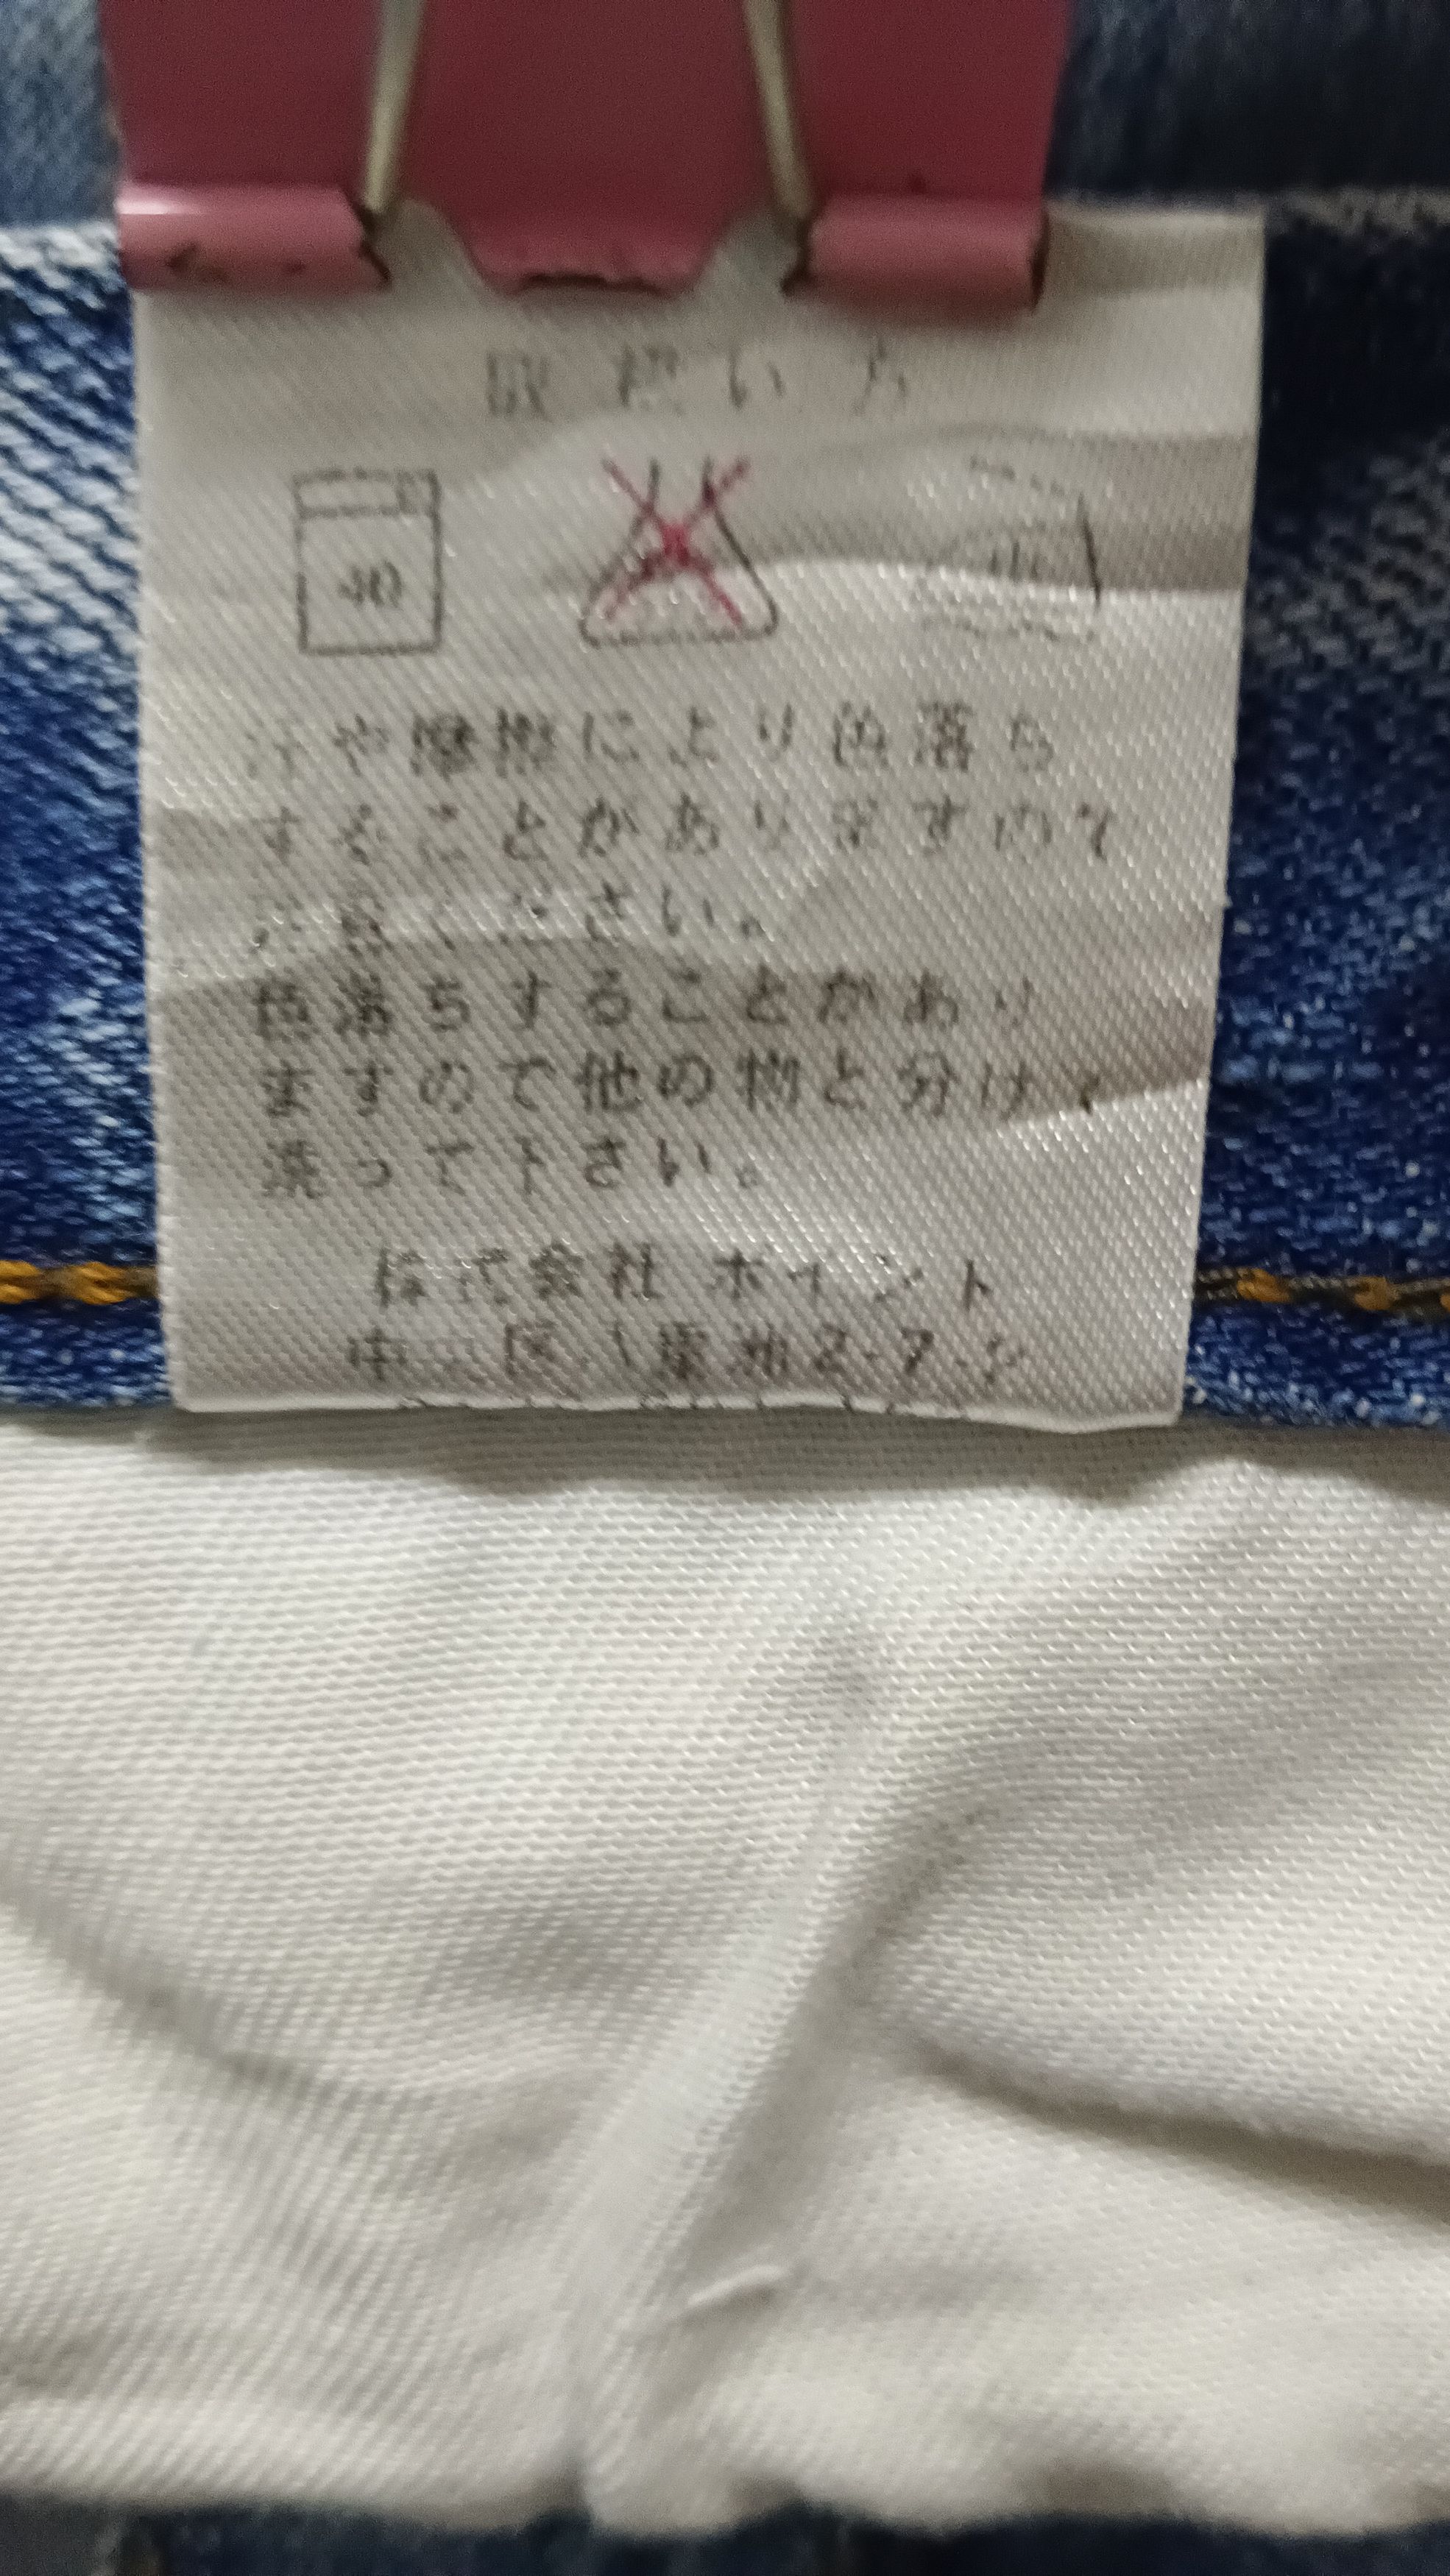 取扱い方
40
中
汗や摩擦により色落ち
することがありますので
さい。
色落ちすることがあり
ますので他の物と分けて
洗って下さい。
株式会社 ポイント
区 2-7-